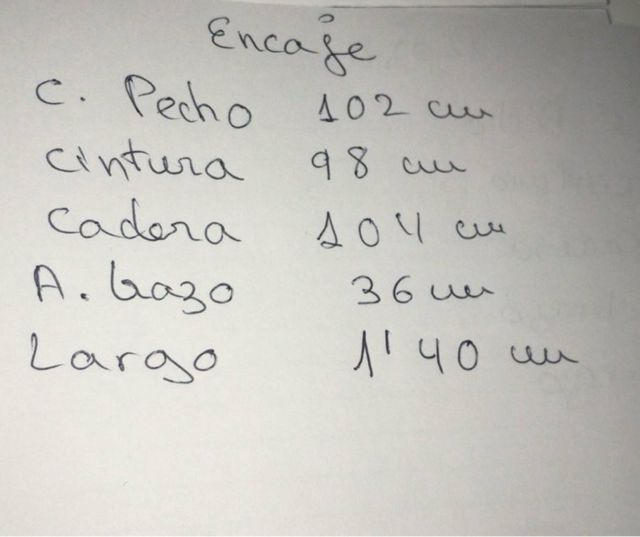 Encaje
C. Pecho 102 cm
Cintura 98 cm
Cadera 104 cm
A. brazo 36 cm
Largo 1'40 cm